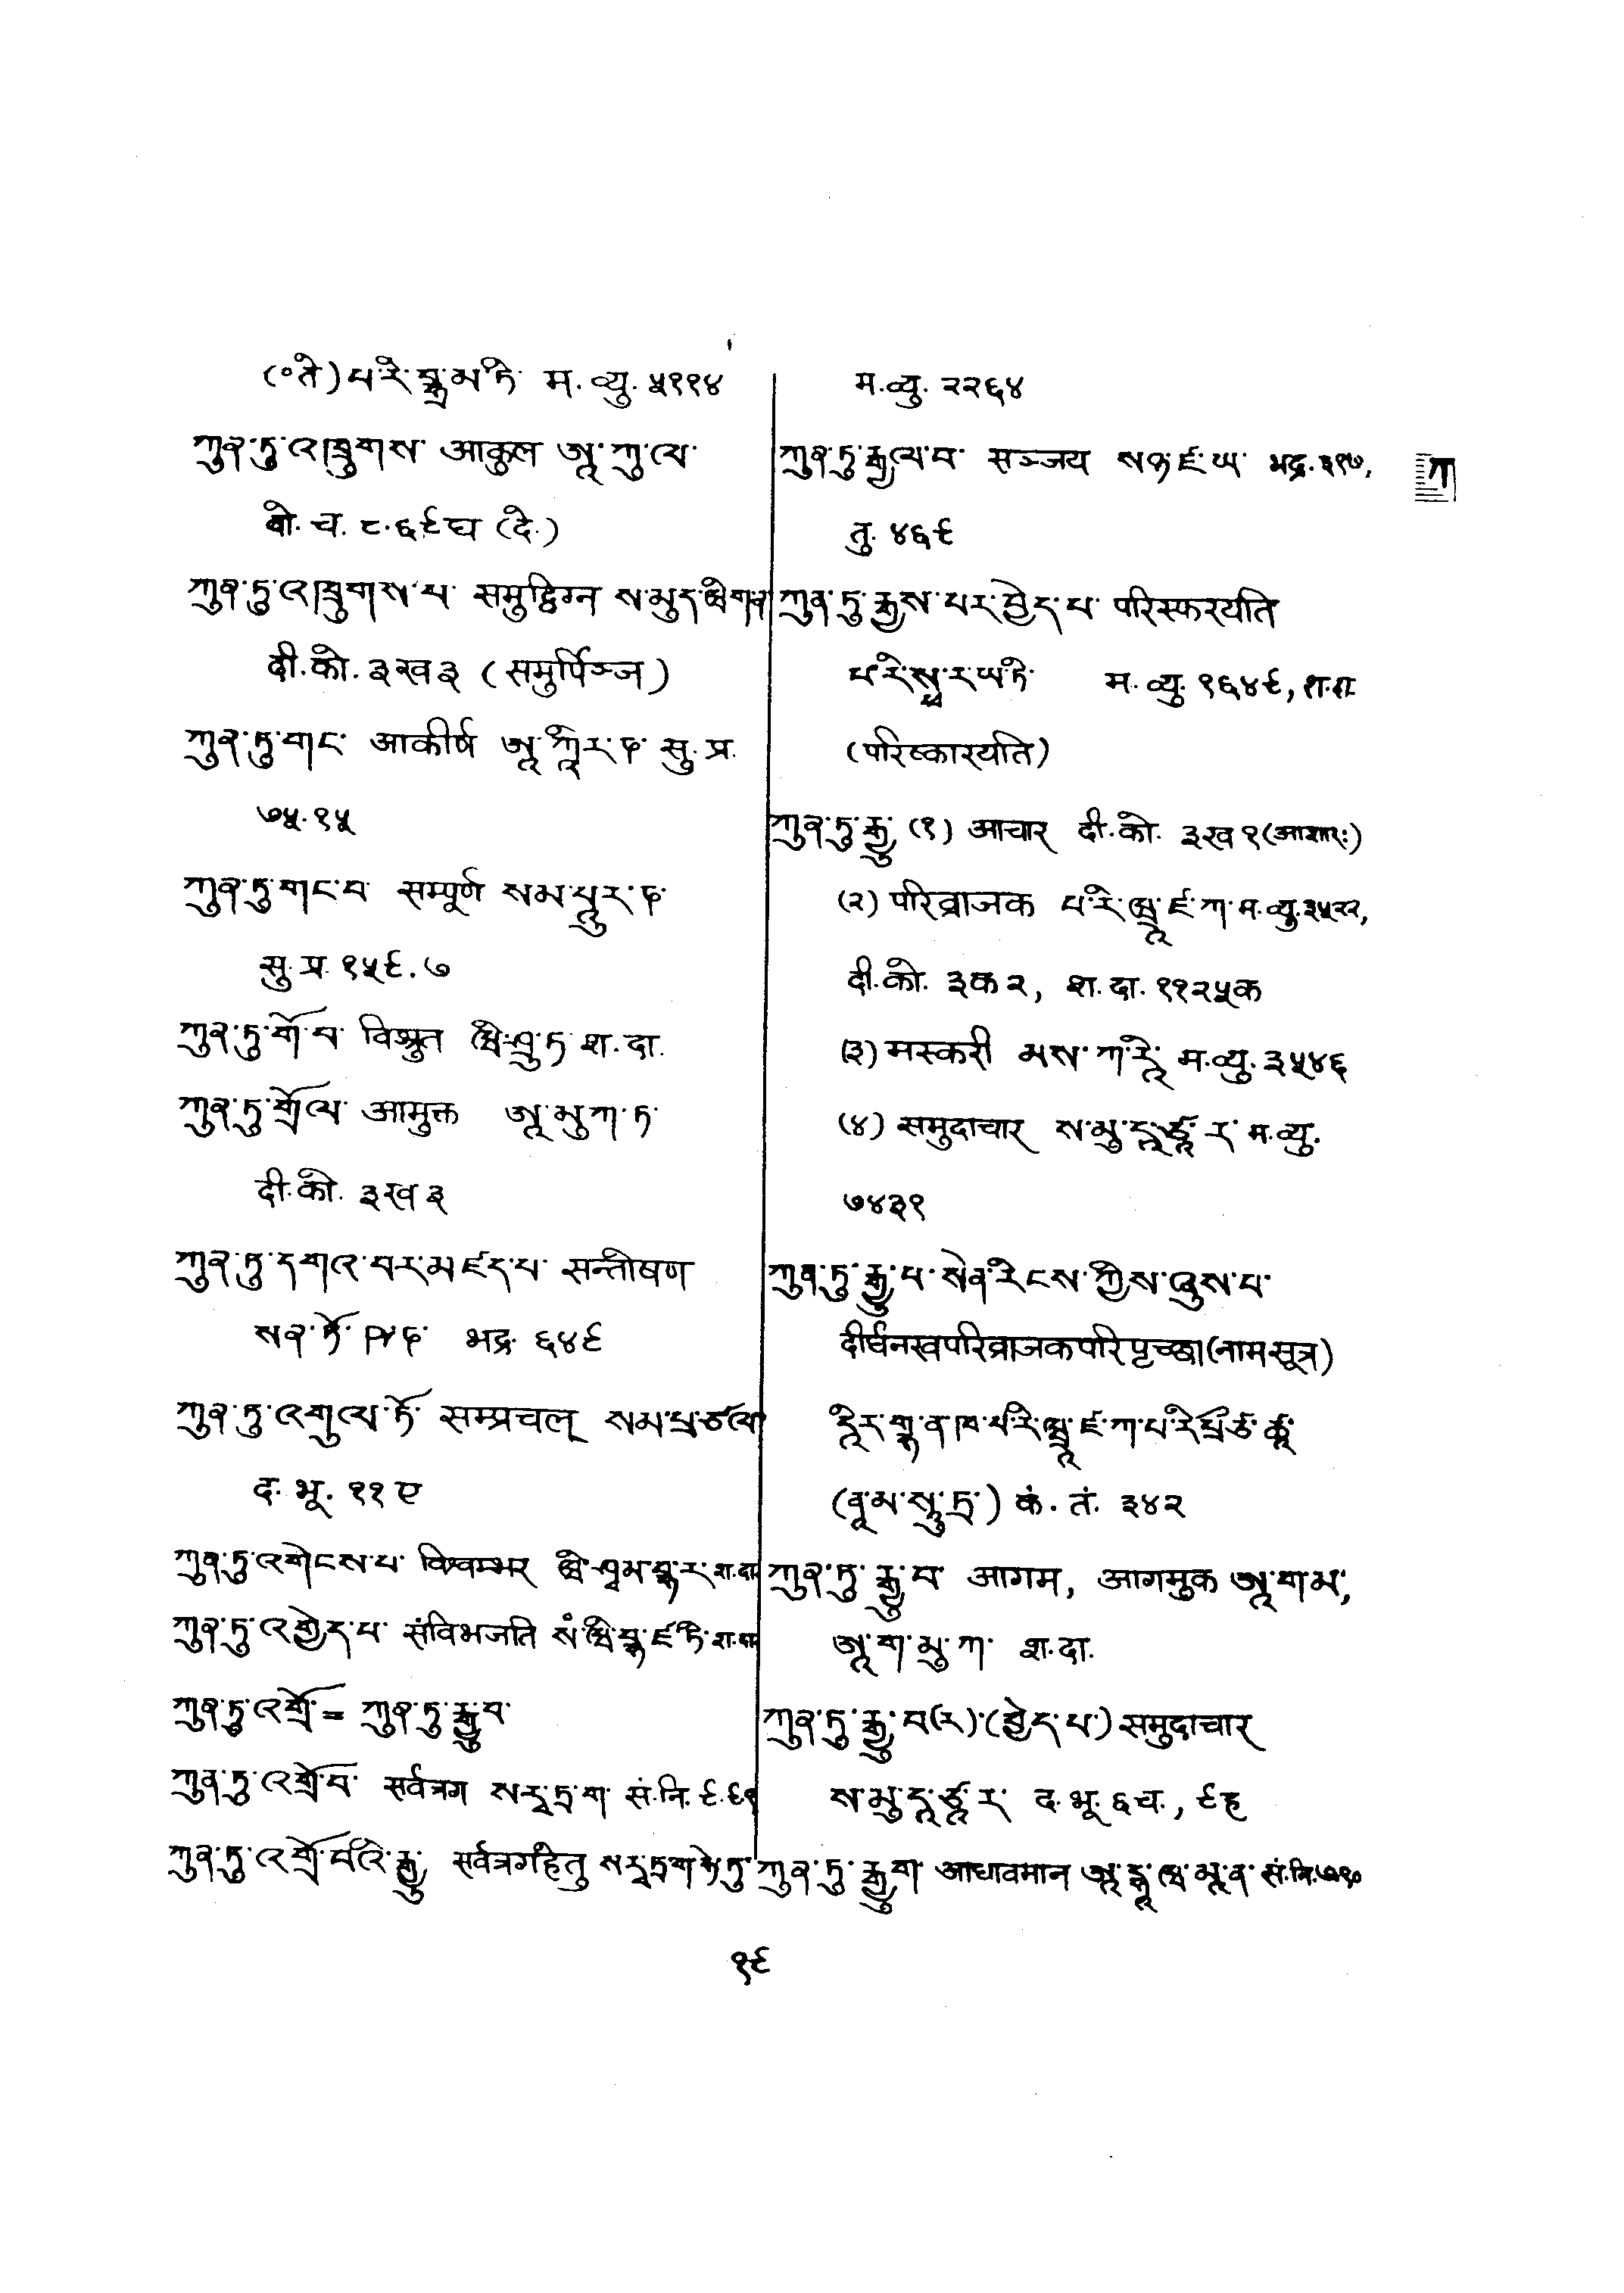 (°ते) པ་རི་བྷྲ་མ་ཏི་ म. व्यु. ५११४
ཀུན་ཏུ་འཁྲུགས་ आकुल ཨཱ་ཀུ་ལ་
बो. च. ८.६९घ (दे.)
ཀུན་ཏུ་འཁྲུགས་པ་ समुद्विग्न ས་མུད་
दी. को. ३ख३ (समुर्पिञ्ज)
ཀུན་ཏུ་གང་ आकीर्ण ཨཱ་ཀཱིར་ཎ་ सु. प्र.
७५.१५
ཀུན་ཏུ་གང་བ་ सम्पूर्ण སམ་པཱུར་ཎ་
सु. प्र. १५९.७
ཀུན་ཏུ་གོ་བ་ विश्रुत ཝི་ཤྲུ་ཏ श. दा.
ཀུན་ཏུ་གྲོལ་ आमुक्त ཨཱ་མུ་ཀ་ཏ་
दी. को. ३ख३
ཀུན་ཏུ་དགའ་བར་མཛད་པ་ सन्तोषण
སན་ཏོ་ཥ་ཎ་ भद्र. ६४९
ཀུན་ཏུ་འགུལ་ཏོ་ सम्प्रचल् སམ་པྲ་ཙལ
द. भू. ११ए
ཀུན་ཏུ་འགེངས་པ་ विश्वम्भर ཝི་ཤྭམ་བྷ་ར་ श. दा.
ཀུན་ཏུ་འགྱེད་པ་ संविभजति སཾ་ཝི་བྷ་ཛ་ཏི་ श. दा.
ཀུན་ཏུ་འགྲོ་ = ཀུན་ཏུ་རྒྱུ་བ་
ཀུན་ཏུ་འགྲོ་བ་ सर्वत्रग སརྭ་ཏྲ་ག་ सं. नि. ९.९१
ཀུན་ཏུ་འགྲོ་བའི་རྒྱུ་ सर्वत्रगहेतु སརྭ་ཏྲ་ག་ཧེ་ཏུ་
म. व्यु. २२६४
ཀུན་ཏུ་རྒྱལ་བ་ सञ्जय སཉ་ཛ་ཡ་ भद्र. ३१७,
तु. ४६९
ཀུན་ཏུ་རྒྱས་པར་བྱེད་པ་ परिस्फरयति
པ་རི་སྥ་ར་ཡ་ཏི་ म. व्यु. १६४९, श. दा.
(परिष्कारयति)
ཀུན་ཏུ་རྒྱུ་ (१) आचार् दी. को. ३ख१
(२) परिव्राजक པ་རི་ཝྲཱ་ཛ་ཀ་ म. व्यु. ३५२२,
दी. को. ३क२, श. दा. ११२५क
(३) मस्करी མས་ཀ་རཱི་ म. व्यु. ३५४६
(४) समुदाचार् ས་མུ་དཱ་ཙཱ་ར་ म. व्यु.
७४३१
ཀུན་ཏུ་རྒྱུ་པ་སེན་རིངས་ཀྱིས་ཞུས་པ་
दीर्घनखपरिव्राजकपरिपृच्छा (नामसूत्र)
དཱིར་གྷ་ན་ཁ་པ་རི་ཝྲཱ་ཛ་ཀ་པ་རི་པྲྀཙ་ཚཱ་
(ནཱ་མ་སཱུ་ཏྲ་) कं. तं. ३४२
ཀུན་ཏུ་རྒྱུ་བ་ आगम, आगमुक ཨཱ་ག་མ་,
ཨཱ་ག་མུ་ཀ་ श. दा.
ཀུན་ཏུ་རྒྱུ་བ(ར)་(བྱེད་པ་) समुदाचार्
ས་མུ་དཱ་ཙཱ་ར་ द. भू. ६च., ९ह
ཀུན་ཏུ་རྒྱུག་ आधावमान ཨཱ་དྷཱ་ཝ་མཱ་ན་ सं. नि.
ཀ
१९